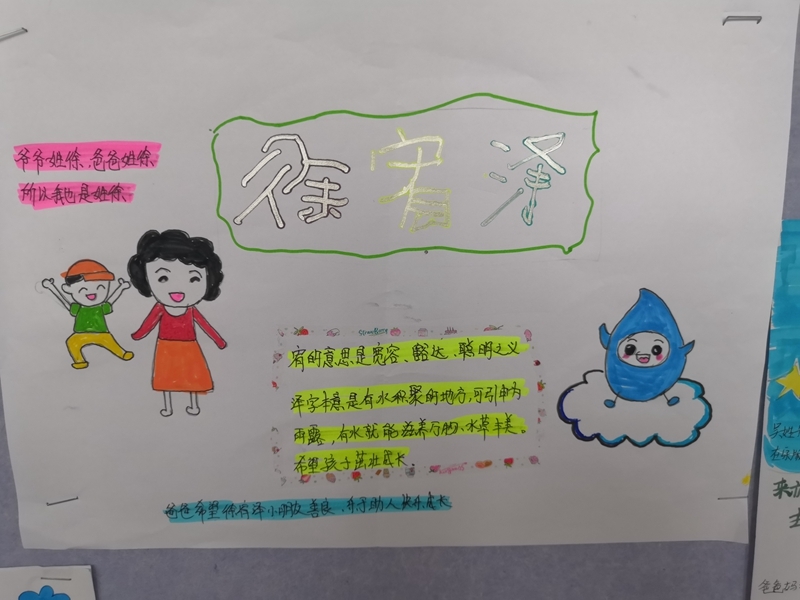 徐宥泽
爷爷姓徐、爸爸姓徐、
所以我也是姓徐.
宥的意思是宽容、豁达、聪明之义
泽字本意是有水积聚的地方,可引申为
雨露,有水就能滋养万物、水草丰美。
希望孩子茁壮成长.
爸爸希望徐宥泽小朋友善良、乐于助人快乐成长
吴姓
爸爸